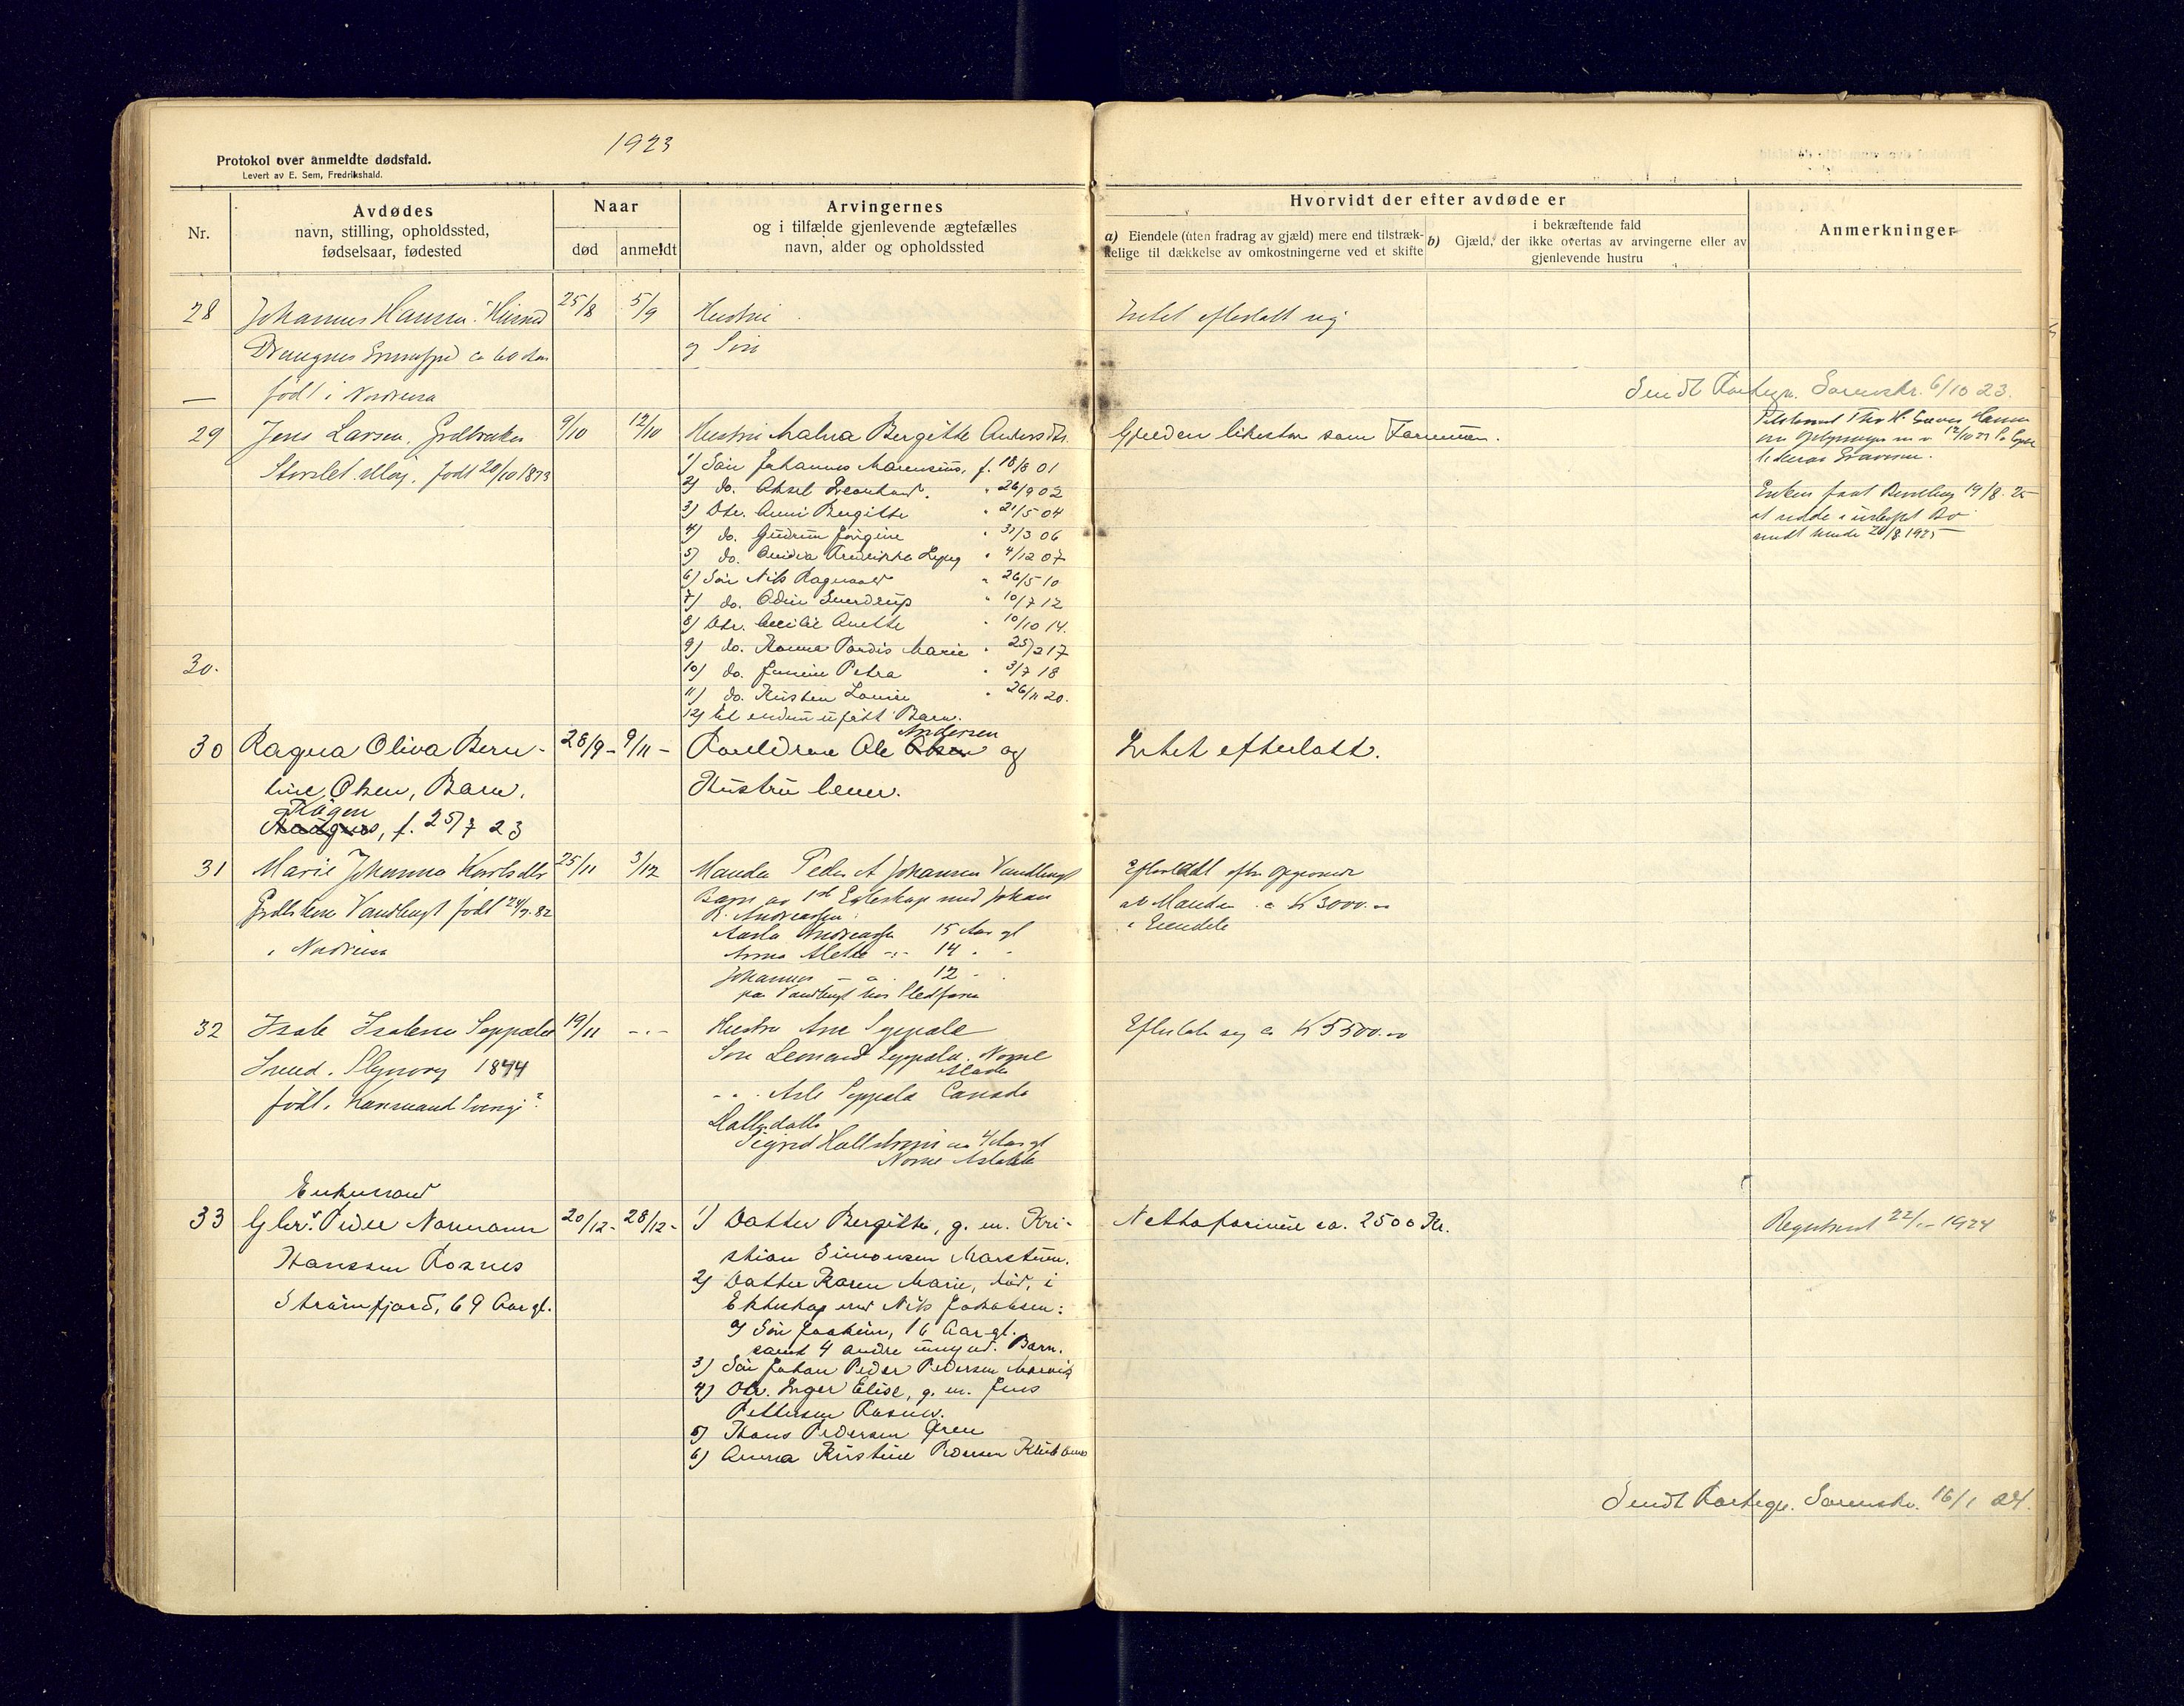 1923
Protokol over anmeldte dødsfald.
Levert av E. Sem, Fredrikshald.
Nr.
Avdødes
navn, stilling, opholdssted,
fødselsaar, fødested
Naar
død
anmeldt
Arvingernes
og i tilfælde gjenlevende ægtefælles
navn, alder og opholdssted
Hvorvidt der efter avdøde er
a) Eiendele (uten fradrag av gjæld) mere end tilstræk-
kelige til dækkelse av omkostningerne ved et skifte
b) i bekræftende fald
Gjæld, der ikke overtas av arvingerne eller av
gjenlevende hustru
Anmerkninger
28 Johannes Hansen 25/8 5/9 Hustru Intet efterlatt sig
ca 60 Aar og Søn
født i Nordreisa
Sendt Sorenskr. 6/10 23.
29 Jens Larsen, Grdbruker 9/10 12/10 Hustru Malva Bergitte Andersdtr. Gjelden likestor som Formuen.
Storslet født 20/10 1873
1) Søn Johannes Marensius, f. 18/8 01
2) do. Aksel Leonhard. " 26/9 02
3) Dtr. Anni Bergitte " 21/5 04
4) do. Gudrun Jørgine " 31/3 06
5) do. Fredrikke " 4/12 07
6) Søn Nils Ragnvald " 26/5 10
7) do. Odin Sverdrup " 10/7 12
8) Dtr. Cecilie Anette " 10/10 14.
9) do. Hanna Tordis Marie " 25/2 17
10) do. Jensine Petra " 3/7 18
11) do. Kirsten Lovise " 26/11 20.
12) et endnu ufødt Barn.
Enken faat Bevilling 19/8 25
at sidde i uskiftet Bo
sendt hende 20/8 1925
30.
30 Ragna Oliva Bern- 28/9 - 9/11 - Forældrene Ole Olsen Andersen og Intet efterlatt.
tine Olsen, Barn. Hustru lever.
Kaagen
f. 25/7 23
31 Marie Johanna Karlsdtr 25/11 3/12 Manden Peder A Johansen Vandbugt Efterladt efter opgivende
Vandbugt født 24/7.82 Barn av 1st Egteskap med Johan av Manden ca Kr 3000.00
i Nordreisa R. Andreassen: i Eiendele
Andreassen 15 Aar gl
Anna Alette -"- 14 " "
Johannes - " 12 - "
paa Vandbugt hos Stedfaren
32 Isak Isaksen Seppälä 19/11 -"- Hustru Ane Seppala Efterlatt sig ca Kr 5500.00
1844 Søn Leonard Seppala. Nome
Alaska
født i - " Seppala Canada
Sigrid Hallstrøm
Nome
Enkemand
33 Gbr. Peder Normann 20/12 - 28/12 - 1) Datter Bergitte, g. m. Kri- Nettoformue ca. 2500 Kr. Registrert 22/1 - 1924
Hanssen Rosnes stian Simonsen
Straumfjord, 69 Aar gl. 2) Datter Karen Marie, død, i
Ekteskap med Nils Jakobsen:
a) Søn Joakim, 16 Aar gl.
samt 4 andre umynd. Barn.
3) Søn Johan Peder Pedersen
4) Dtr. Inger Elise, g. m. Jens
Pettersen Rosnes.
5) Hans Pedersen
6) Anna Kristine Pedersen
Sendt Sorenskr. 16/1 24.